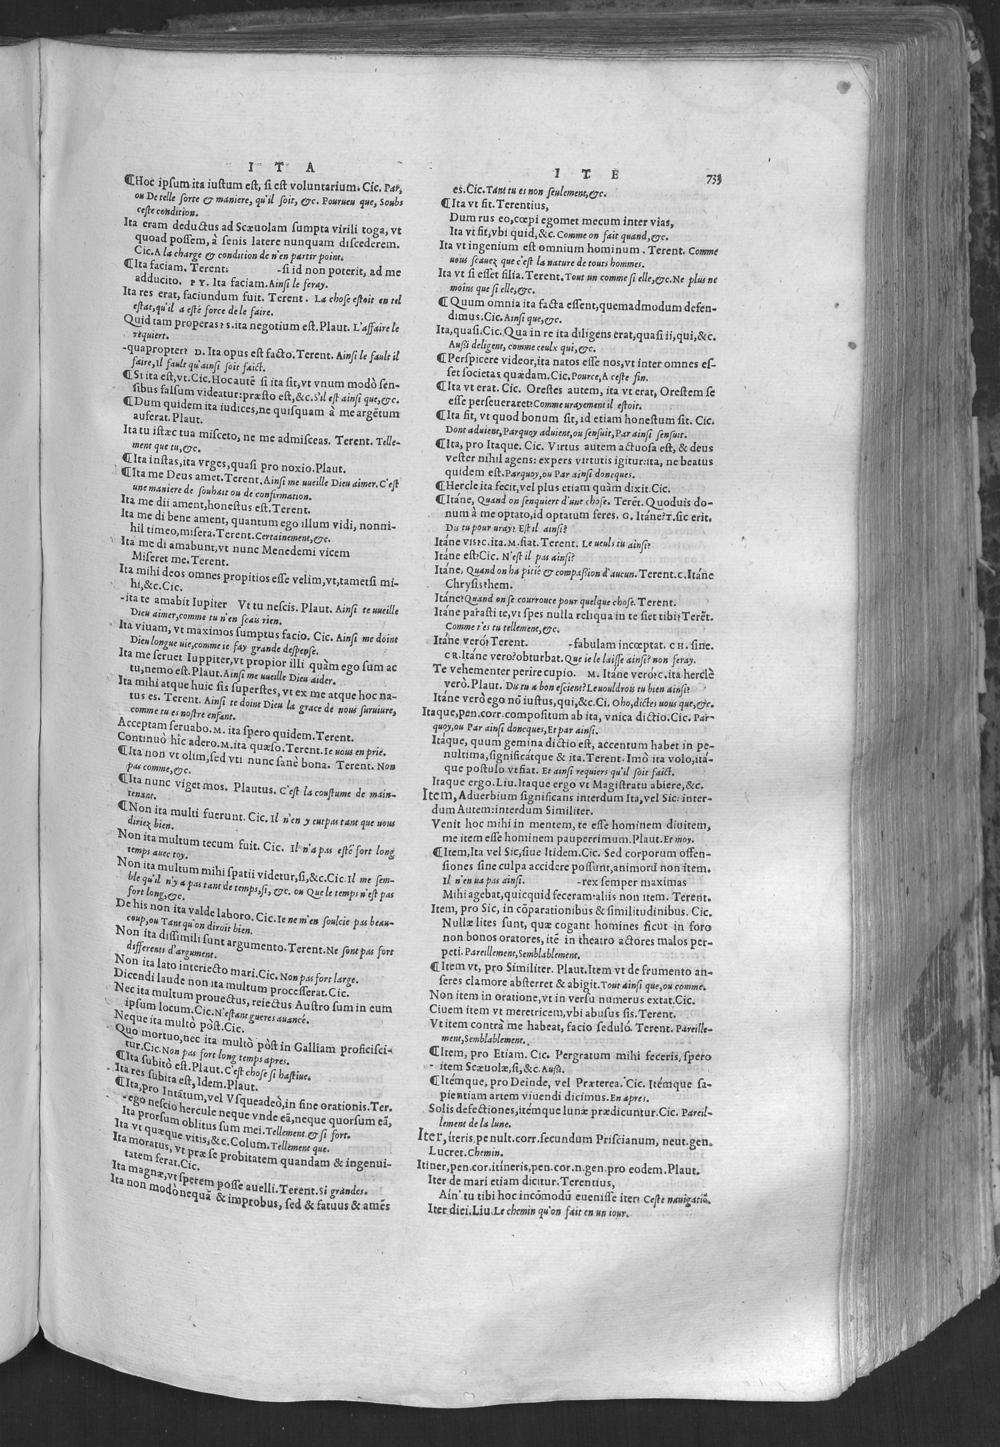 I T A
¶Hoc ipsum ita iustum est, si est voluntarium. Cic. Par,
ou De telle sorte & maniere, qu'il soit, &c. Pourueu que, Soubs
ceste condition.
Ita eram deductus ad Scæuolam sumpta virili toga, vt
quoad possem, à senis latere nunquam discederem.
Cic. A la charge & condition de n'en partir point.
¶Ita faciam. Terent. -si id non poterit, ad me
adducito. P Y. Ita faciam. Ainsi le feray.
Ita res erat, faciundum fuit. Terent. La chose estoit en tel
estat, qu'il a esté force de le faire.
Quid tam properas? s. ita negotium est. Plaut. L'affaire le
requiert.
-quapropter? D. Ita opus est facto. Terent. Ainsi le fault il
faire, il fault qu'ainsi soit faict.
¶Si ita est, vt. Cic. Hocautē si ita sit, vt vnum modò sen-
sibus falsum videatur: præsto est, &c. S'il est ainsi que, &c.
¶Dum quidem ita iudices, ne quisquam à me argētum
auferat. Plaut.
Ita tu istæc tua misceto, ne me admisceas. Terent. Telle-
ment que tu, &c.
¶Ita instas, ita vrges, quasi pro noxio. Plaut.
¶Ita me Deus amet. Terent. Ainsi me uueille Dieu aimer. C'est
une maniere de souhait ou de confirmation.
Ita me dii ament, honestus est. Terent.
Ita me di bene ament, quantum ego illum vidi, nonni-
hil timeo, misera. Terent. Certainement, &c.
Ita me di amabunt, vt nunc Menedemi vicem
Miseret me. Terent.
Ita mihi deos omnes propitios esse velim, vt, tametsi mi-
hi, &c. Cic.
-ita te amabit Iupiter Vt tu nescis. Plaut. Ainsi te uueille
Dieu aimer, comme tu n'en scau rien.
Ita viuam, vt maximos sumptus facio. Cic. Ainsi me doint
Dieu longue uie, comme ie fay grande despense.
Ita me seruet Iuppiter, vt propior illi quàm ego sum ac
tu, nemo est. Plaut. Ainsi me uueille Dieu aider.
Ita mihi atque huic sis superstes, vt ex me atque hoc na-
tus es. Terent. Ainsi te doint Dieu la grace de nous suruiure,
comme tu es nostre enfant.
Acceptam seruabo. M. ita spero quidem. Terent.
Continuò hic adero. M. ita quæso. Terent. Ie uous en prie.
¶Ita non vt olim, sed vti nunc sanè bona. Terent. Non
pas comme, &c.
¶Ita nunc viget mos. Plautus. C'est la coustume de main-
tenant.
¶Non ita multi fuerunt. Cic. Il n'en y eut pas tant que uous
diriez bien.
Non ita multum tecum fuit. Cic. Il n'a pas esté fort long
temps auec toy.
Non ita multum mihi spatii videtur, si, &c. Cic. Il me sem-
ble qu'il n'y a pas tant de temps, si, &c. ou Que le temps n'est pas
fort long, &c.
De his non ita valde laboro. Cic. Ie ne m'en soulcie pas beau-
coup, ou Tant qu'on diroit bien.
Non ita dissimili sunt argumento. Terent. Ne sont pas fort
differents d'argument.
Non ita lato interiecto mari. Cic. Non pas fort large.
Dicendi laude non ita multum processerat. Cic.
Nec ita multum prouectus, reiectus Austro sum in eum
ipsum locum. Cic. N'estant gueres auancé.
Neque ita multò pòst. Cic.
Quo mortuo, nec ita multò pòst in Galliam proficisci-
tur. Cic. Non pas fort long temps apres.
¶Ita subitò est. Plaut. C'est chose si hastiue.
Ita res subita est, Idem. Plaut.
¶Ita, pro Intātum, vel Vsqueadeò, in fine orationis. Ter.
-ego nescio hercule neque vnde eā, neque quorsum eā,
Ita prorsum oblitus sum mei. Tellement & si fort.
Ita vt quæque vitis, &c. Colum. Tellement que.
Ita moratus, vt præ se probitatem quandam & ingenui-
tatem ferat. Cic.
Ita magnæ, vt sperem posse auelli. Terent. Si grandes.
Ita non modò nequā & improbus, sed & fatuus & amēs
I T E 733
es. Cic. Tant tu es non seulement, &c.
¶Ita vt fit. Terentius,
Dum rus eo, cœpi egomet mecum inter vias,
Ita vt fit, vbi quid, &c. Comme on fait quand, &c.
Ita vt ingenium est omnium hominum. Terent. Comme
uous scauez que c'est la nature de touts hommes.
Ita vt si esset filia. Terent. Tout un comme si elle, &c. Ne plus ne
moins que si elle, &c.
¶Quum omnia ita facta essent, quemadmodum defen-
dimus. Cic. Ainsi que, &c.
Ita, quasi. Cic. Qua in re ita diligens erat, quasi ii, qui, &c.
Aussi deligent, comme ceulx qui, &c.
¶Perspicere videor, ita natos esse nos, vt inter omnes es-
set societas quædam. Cic. Pource, A ceste fin.
¶Ita vt erat. Cic. Orestes autem, ita vt erat, Orestem se
esse perseueraret: Comme urayement il estoit.
¶Ita fit, vt quod bonum sit, id etiam honestum sit. Cic.
Dont aduient, Parquoy aduient, ou sensuit, Par ainsi sensuit.
¶Ita, pro Itaque. Cic. Virtus autem actuosa est, & deus
vester nihil agens: expers virtutis igitur: ita, ne beatus
quidem est. Parquoy, ou Par ainsi doncques.
¶Hercle ita fecit, vel plus etiam quàm dixit. Cic.
¶Itáne, Quand on senquiert d'une chose. Terēt. Quoduis do-
num à me optato, id optatum feres. G. Itáne? T. sic erit.
Dis tu pour uray? Est il ainsi?
Itáne vis? C. ita. M. fiat. Terent. Le ueuls tu ainsi?
Itáne est? Cic. N'est il pas ainsi?
Itáne, Quand on ha pitié & compassion d'aucun. Terent. C. Itáne
Chrysis? hem.
Itáne? Quand on se courrouce pour quelque chose. Terent.
Itáne parasti te, vt spes nulla reliqua in te siet tibi? Terēt.
Comme t'es tu tellement, &c.
Itáne verò? Terent. -fabulam incœptat. CH. sine.
CR. Itáne vero? obturbat. Que ie le laisse ainsi? non feray.
Te vehementer perire cupio. M. Itáne verò? C. ita herclè
verò. Plaut. Dis tu a bon escient? Le uouldrois tu bien ainsi?
Itáne verò ego nō iustus, qui, &c. Ci. Oho, dictes uous que, &c.
Itaque, pen. corr. compositum ab ita, vnica dictio. Cic. Par-
quoy, ou Par ainsi doncques, Et par ainsi.
Itáque, quum gemina dictio est, accentum habet in pe-
nultima, significátque & ita. Terent. Imò ita volo, itá-
que postulo vt fiat. Et ainsi requiers qu'il soit faict.
Itaque ergo. Liu. Itaque ergo vt Magistratu abiere, &c.
Item, Aduerbium significans interdum Ita, vel Sic: inter-
dum Autem: interdum Similiter.
Venit hoc mihi in mentem, te esse hominem diuitem,
me item esse hominem pauperrimum. Plaut. Et moy.
¶Item, Ita vel Sic, siue Itidem. Cic. Sed corporum offen-
siones sine culpa accidere possunt, animorū non item.
Il n'en ua pas ainsi. -rex semper maximas
Mihi agebat, quicquid feceram: aliis non item. Terent.
Item, pro Sic, in cōparationibus & similitudinibus. Cic.
Nullæ lites sunt, quæ cogant homines sicut in foro
non bonos oratores, itē in theatro actores malos per-
peti. Pareillement, Semblablement.
¶Item vt, pro Similiter. Plaut. Item vt de frumento an-
seres clamore absterret & abigit. Tout ainsi que, ou comme.
Non item in oratione, vt in versu numerus extat. Cic.
Ciuem item vt meretricem, vbi abusus sis. Terent.
Vt item contrà me habeat, facio sedulò. Terent. Pareille-
ment, Semblablement.
¶Item, pro Etiam. Cic. Pergratum mihi feceris, spero
item Scæuolæ, si, &c. Aussi.
¶Itémque, pro Deinde, vel Præterea. Cic. Itémque sa-
pientiam artem viuendi dicimus. En apres.
Solis defectiones, itémque lunæ prædicuntur. Cic. Pareil-
lement de la lune.
Iter, iteris, penult. corr. secundum Priscianum, neut. gen.
Lucret. Chemin.
Itiner, pen. cor. itíneris, pen. cor. n. gen. pro eodem. Plaut.
Iter de mari etiam dicitur. Terentius,
Ain' tu tibi hoc incōmodū euenisse iter? Ceste nauigatiō.
Iter diei. Liu. Le chemin qu'on fait en un iour.